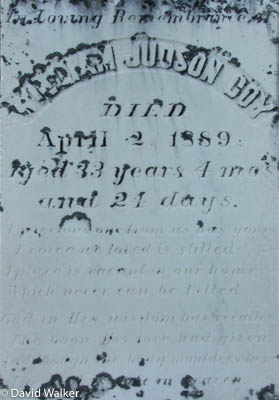 In Loving Remembrance of
WILLIAM JUDSON COY
DIED
April 2, 1889:
Aged 33 years 4 mos
and 24 days.
A precious one from us has gone
A voice we loved is stilled
A place is vacant in our home
Which never can be filled
God in His wisdom has recalled
The boon His love had given
Although the body moulders here
in heaven
© David Walker.